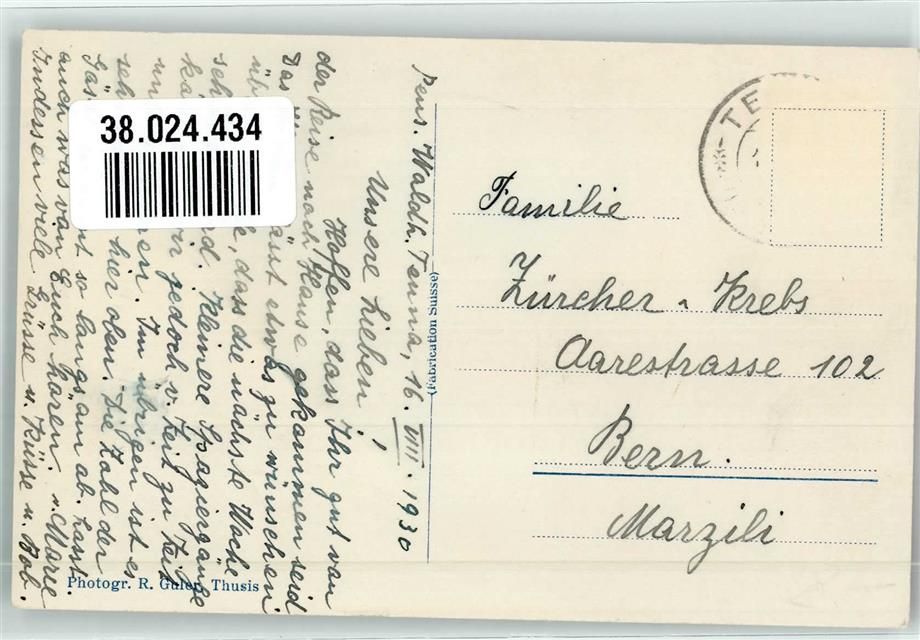 38.024.434
Pens. Waldh. Tenna, 16. VIII. 1930
Unsere Lieben!
Hoffen, dass Ihr gut von
der Reise nach Hause gekommen seid
Das etwas zu wünschen
dass die nächste Woche
Kleinere Spaziergänge
wir jedoch v. Zeit zu Zeit
Im übrigen ist es
hier oben. Die Zahl der
so langsam ab. Lasst
auch was von Euch hören.
Indessen viele Grüsse u. Küsse v. Marie
u. Bob.
Photogr. R. Guler, Thusis
(Fabrication Suisse)
TE
Familie
Zürcher - Krebs
Aarestrasse 102
Bern.
Marzili